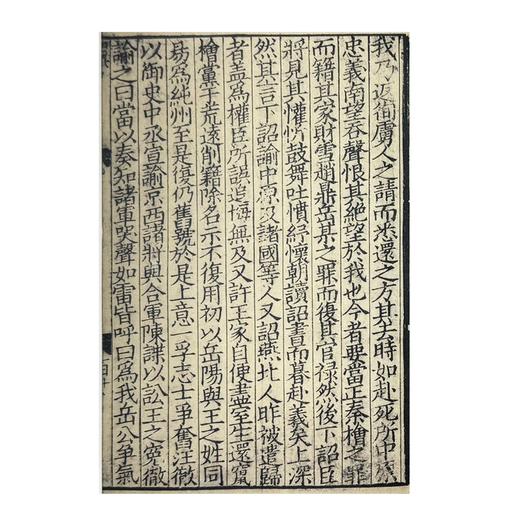 我乃返徇虜人之請而悉還之方其去時如赴死所中原
忠義南望吞聲恨其絶望於我也今者要當正秦檜之罪
而籍其家財雪趙鼎岳某之罪而復其官禄然後下詔臣
將見其懽忻鼓舞吐憤紓懷朝讀詔書而暮赴義矣上深
然其言下詔諭中原及諸國等人又詔燕北人昨被遣歸
者盖爲權臣所誤追悔無及又許王家自便盡室生還竄
檜黨于荒逺削籍除名示不復用初以岳陽與王之姓同
昜爲純州至是復仍舊號於是上意一孚志士爭奮汪徹
以御史中丞宣諭京西諸將與合軍陳諜以訟王之寃徹
諭之曰當以奏知諸軍哭聲如雷皆呼曰爲我岳公爭氣